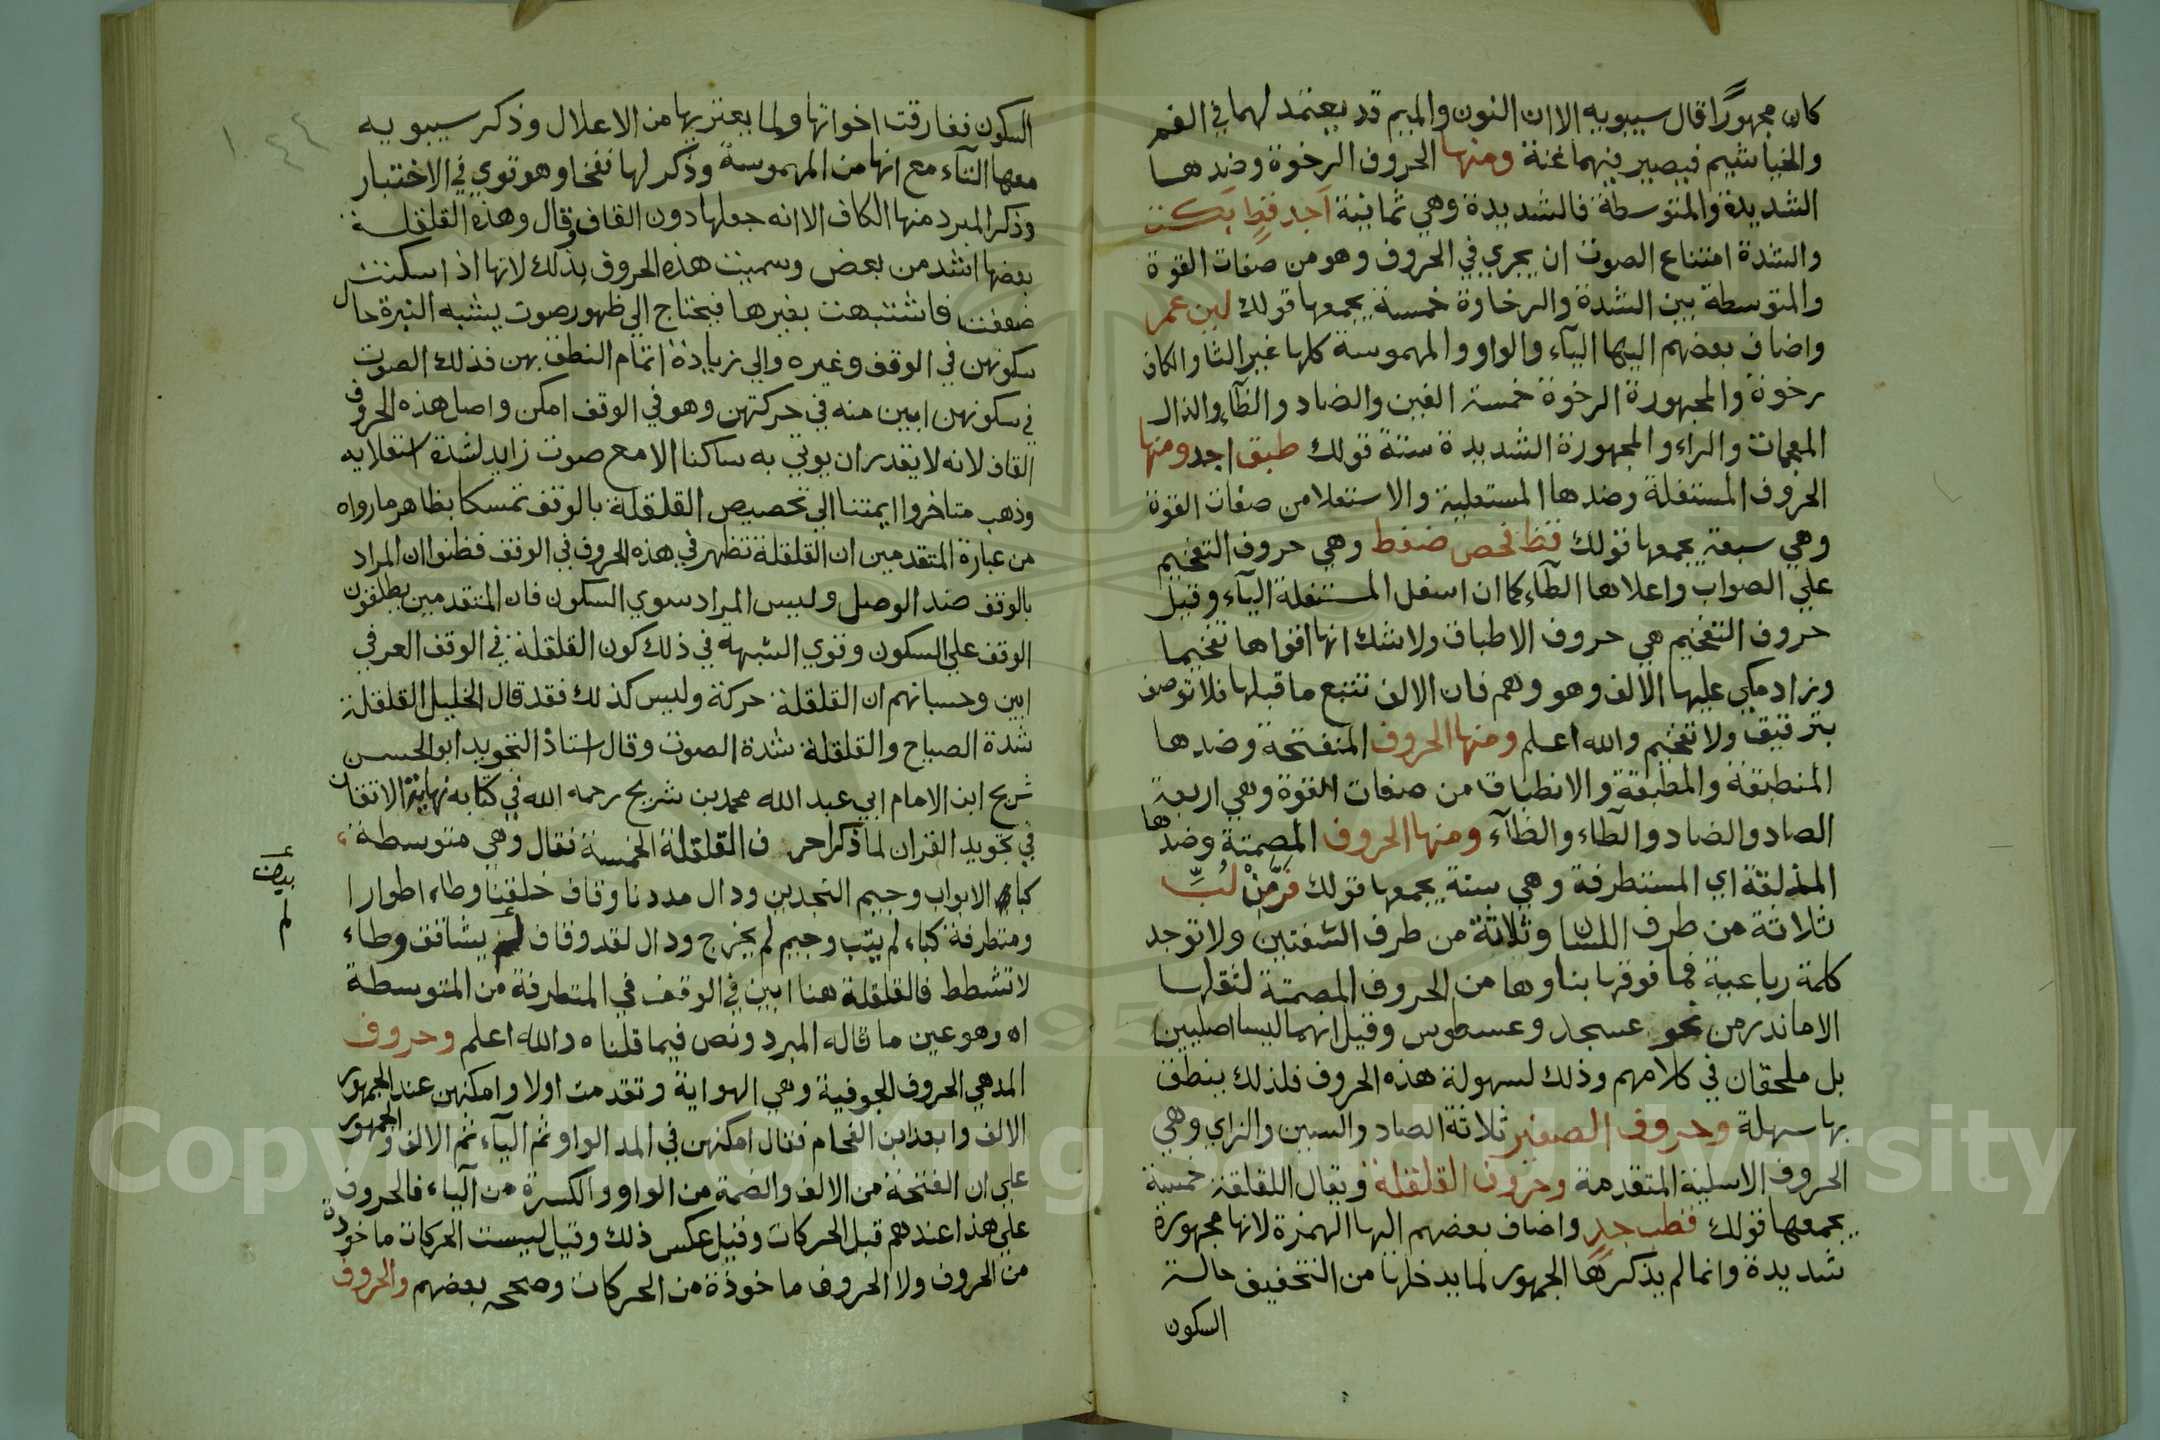 كان مجهورًا قال سيبويه الا ان النون والميم قد يعتمد لهما في الفم
والخياشيم فيصير فيهما غنة ومنها الحروف الرخوة وضدها
الشديدة والمتوسطة فالشديدة وهي ثمانية اجد قط بكت
والشدة امتناع الصوت ان يجري في الحروف وهو من صفات القوة
والمتوسطة بين الشدة والرخاوة خمسة يجمعها قولك لين عمر
واضاف بعضهم اليها اليآء والواو والمهموسة كلها غير التا والكاف
رخوة والمجهورة الرخوة خمسة الغين والضاد والظآء والذال
المعجمات والراء والمجهورة الشديدة ستة قولك طبق اجد ومنها
الحروف المستفلة وضدها المستعلية والاستعلا من صفات القوة
وهي سبعة يجمعها قولك قظ خص ضغط وهي حروف التفخيم
علي الصواب واعلاها الطآء كما ان اسفل المستفلة اليآء وقيل
حروف التفخيم هي حروف الاطباق ولا شك انها اقواها تفخيما
وزاد مكي عليها الالف وهو وهم فان الالف تتبع ما قبلها فلا توصف
بترقيق ولا تفخيم والله اعلم ومنها الحروف المنفتحة وضدها
المنطبقة والمطبقة والانطباق من صفات القوة وهي اربعة
الصاد والضاد والطآء والظآء ومنها الحروف المصمتة وضدها
المذلقة اي المستطرفة وهي ستة يجمعها قولك فَرَّ مِنْ لُبِّ
ثلاثة من طرف اللسان وثلاثة من طرف الشفتين ولا توجد
كلمة رباعية فما فوقها بناوها من الحروف المصمتة لثقلها
الا ما ندر من نحو عسجد وعسطوس وقيل انهما ليسا اصليين
بل ملحقان في كلامهم وذلك لسهولة هذه الحروف فلذلك ينطق
بها سهلة وحروف الصفير ثلاثة الصاد والسين والزاي وهي
الحروف الاسلية المتقدمة وحروف القلقلة ويقال اللقلقة خمسة
يجمعها قولك قطب جد واضاف بعضهم اليها الهمزة لانها مجهورة
شديدة وانما لم يذكرها الجمهور لما يدخلها من التخفيف حالة
السكون
السكون ففارقت اخواتها ولما يعتريها من الاعلال وذكر سيبويه
معها التآء مع انها من المهموسة وذكر لها نفخا وهو قوي في الاختبار
وذكر المبرد منها الكاف الا انه جعلها دون القاف وقال وهذه القلقلة
بعضها اشد من بعض وسميت هذه الحروف بذلك لانها اذا سكنت
ضعفت فاشتبهت بغيرها فيحتاج الي ظهور صوت يشبه النبرة حال
سكونهن في الوقف وغيره والي زيادة اتمام النطق بهن فذلك الصوت
في سكونهن ابين منه في حركتهن وهو في الوقف امكن واصل هذه الحروف
القاف لانه لا يقدر ان يوتي به ساكنا الا مع صوت زايد لشدة استعلايه
وذهب متاخروا ايمتنا الي تخصيص القلقلة بالوقف تمسكا بظاهر ما رواه
من عبارة المتقدمين ان القلقلة تظهر في هذه الحروف في الوقف فظنوا ان المراد
بالوقف ضد الوصل وليس المراد سوي السكون فان المتقدمين يطلقون
الوقف علي السكون وقوي الشبهه في ذلك كون القلقلة في الوقف العرفي
ابين وحسبانهم ان القلقلة حركة وليس كذلك فقد قال الخليل القلقلة
شدة الصياح واللقلقة شدة الصوت وقال استاذ التجويد ابو الحسن
شريح ابن الامام ابي عبد الله محمد بن شريح رحمه الله في كتابه نهاية الاتقان
في تجويد القران لما ذكر احرف القلقلة الخمسة فقال وهي متوسطة
كباء الابواب وجيم النجدين ودال مددنا وقاف خلقنا وطاء اطوارا
ومتطرفة كباء لم يتب وجيم لم يخرج ودال لقد وقاف لم يشاقق وطاء
لا تشطط فالقلقلة هنا ابين في الوقف في المتطرفة من المتوسطة
اه وهو عين ما قاله المبرد ونص فيما قلناه والله اعلم وحروف
المد هي الحروف الجوفية وهي الهواية وتقدمت اولا وامكنهن عند الجمهور
الالف وابعد ابن الفحام فقال امكنهن في المد الواو ثم اليآء ثم الالف والجمهور
علي ان الفتحة من الالف والضمة من الواو والكسرة من اليآء فالحروف
علي هذا عندهم قبل الحركات وقيل عكس ذلك وقيل ليست الحركات ماخوذة
من الحروف ولا الحروف ماخوذة من الحركات وصححه بعضهم والحروف
Copyright © King Saud University